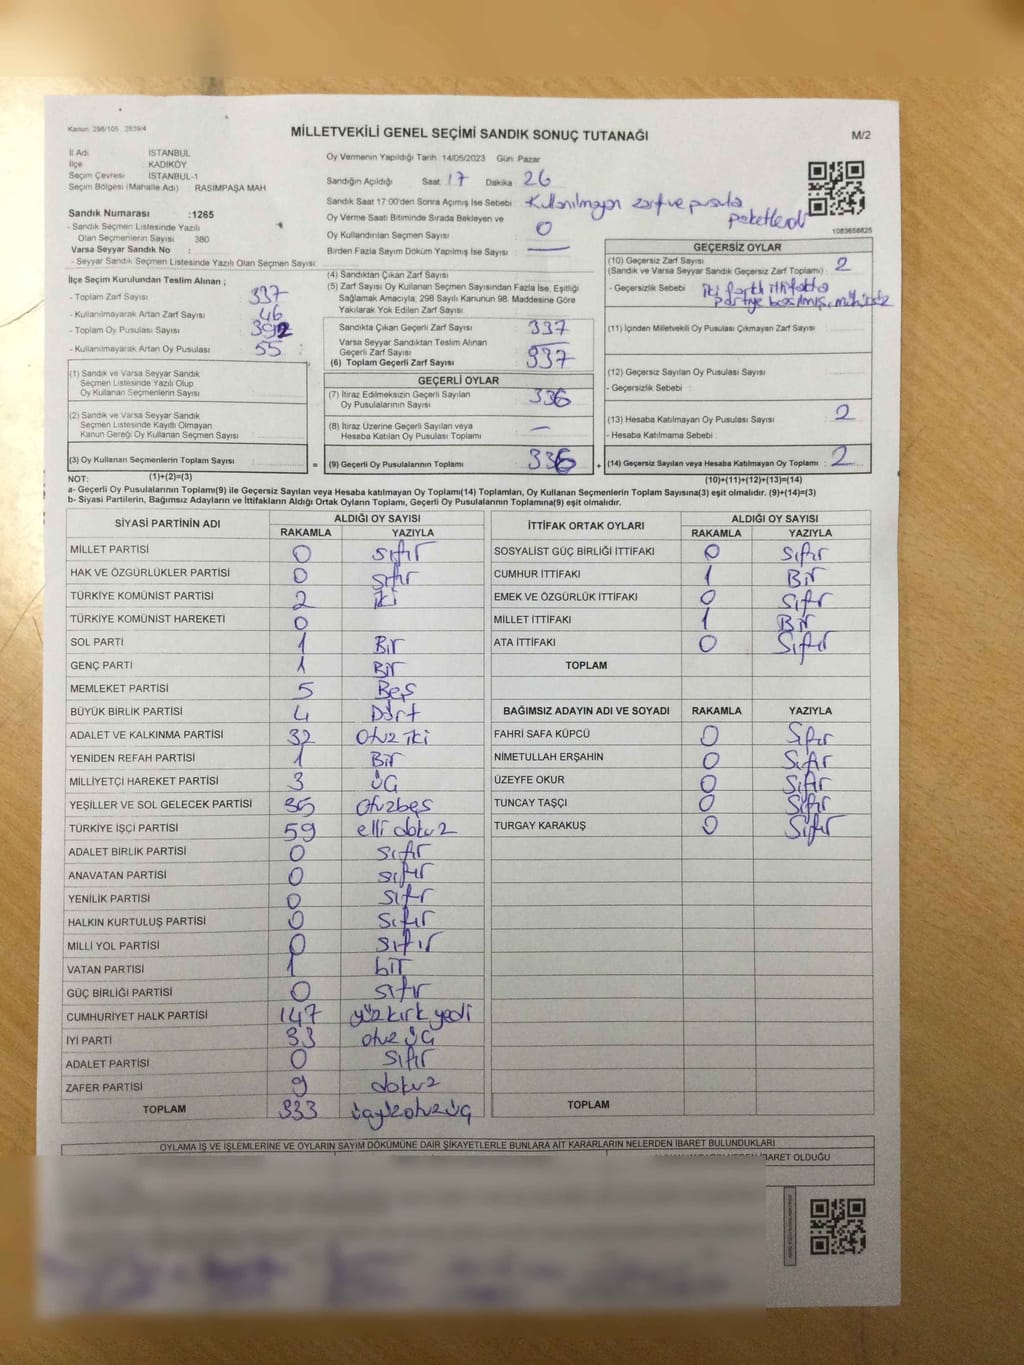 Kanun: 298/105 , 2839/4
MİLLETVEKİLİ GENEL SEÇİMİ SANDIK SONUÇ TUTANAĞI
M/2
İl Adı İSTANBUL
İlçe KADIKÖY
Seçim Çevresi İSTANBUL-1
Seçim Bölgesi (Mahalle Adı) RASIMPAŞA MAH
Sandık Numarası :1265
- Sandık Seçmen Listesinde Yazılı
Olan Seçmenlerin Sayısı 380
Varsa Seyyar Sandık No :
- Seyyar Sandık Seçmen Listesinde Yazılı Olan Seçmen Sayısı:
Oy Vermenin Yapıldığı Tarih 14/05/2023 Gün: Pazar
Sandığın Açıldığı Saat 17 Dakika 26
Sandık Saat 17:00'den Sonra Açımış İse Sebebi Kullanılmayan zarf ve pusula paketlendi
Oy Verme Saati Bitiminde Sırada Bekleyen ve
Oy Kullandırılan Seçmen Sayısı 0
Birden Fazla Sayım Döküm Yapılmış İse Sayısı : —
1083658825
İlçe Seçim Kurulundan Teslim Alınan ;
- Toplam Zarf Sayısı 337
- Kullanılmayarak Artan Zarf Sayısı 46
- Toplam Oy Pusulası Sayısı 392
- Kullanılmayarak Artan Oy Pusulası 55
(1) Sandık ve Varsa Seyyar Sandık
Seçmen Listesinde Yazılı Olup
Oy Kullanan Seçmenlerin Sayısı
(2) Sandık ve Varsa Seyyar Sandık
Seçmen Listesinde Kayıtlı Olmayan
Kanun Gereği Oy Kullanan Seçmen Sayısı
(3) Oy Kullanan Seçmenlerin Toplam Sayısı
(1)+(2)=(3)
(4) Sandıktan Çıkan Zarf Sayısı
(5) Zarf Sayısı Oy Kullanan Seçmen Sayısından Fazla İse, Eşitliği
Sağlamak Amacıyla; 298 Sayılı Kanunun 98. Maddesine Göre
Yakılarak Yok Edilen Zarf Sayısı
Sandıkta Çıkan Geçerli Zarf Sayısı 337
Varsa Seyyar Sandıktan Teslim Alınan
Geçerli Zarf Sayısı —
(6) Toplam Geçerli Zarf Sayısı 337
GEÇERLİ OYLAR
(7) İtiraz Edilmeksizin Geçerli Sayılan
Oy Pusulalarının Sayısı 336
(8) İtiraz Üzerine Geçerli Sayılan veya
Hesaba Katılan Oy Pusulası Toplamı —
= (9) Geçerli Oy Pusulalarının Toplamı 336 +
GEÇERSİZ OYLAR
(10) Geçersiz Zarf Sayısı
(Sandık ve Varsa Seyyar Sandık Geçersiz Zarf Toplamı) : 2
- Geçersizlik Sebebi : iki farklı ittifakta
partiye basılmış, mühürsüz
(11) İçinden Milletvekili Oy Pusulası Çıkmayan Zarf Sayısı :
(12) Geçersiz Sayılan Oy Pusulası Sayısı :
- Geçersizlik Sebebi :
(13) Hesaba Katılmayan Oy Pusulası Sayısı : 2
- Hesaba Katılmama Sebebi :
(14) Geçersiz Sayılan veya Hesaba Katılmayan Oy Toplamı : 2
(10)+(11)+(12)+(13)=(14)
NOT:
a- Geçerli Oy Pusulalarının Toplamı(9) ile Geçersiz Sayılan veya Hesaba katılmayan Oy Toplamı(14) Toplamları, Oy Kullanan Seçmenlerin Toplam Sayısına(3) eşit olmalıdır. (9)+(14)=(3)
b- Siyasi Partilerin, Bağımsız Adayların ve İttifakların Aldığı Ortak Oyların Toplamı, Geçerli Oy Pusulalarının Toplamına(9) eşit olmalıdır.
SİYASİ PARTİNİN ADI ALDIĞI OY SAYISI
RAKAMLA YAZIYLA
MİLLET PARTİSİ 0 sıfır
HAK VE ÖZGÜRLÜKLER PARTİSİ 0 sıfır
TÜRKİYE KOMÜNİST PARTİSİ 2 iki
TÜRKİYE KOMÜNİST HAREKETİ 0
SOL PARTİ 1 Bir
GENÇ PARTİ 1 Bir
MEMLEKET PARTİSİ 5 Beş
BÜYÜK BİRLİK PARTİSİ 4 Dört
ADALET VE KALKINMA PARTİSİ 32 Otuz iki
YENİDEN REFAH PARTİSİ 1 Bir
MİLLİYETÇİ HAREKET PARTİSİ 3 üç
YEŞİLLER VE SOL GELECEK PARTİSİ 35 Otuzbeş
TÜRKİYE İŞÇİ PARTİSİ 59 elli dokuz
ADALET BİRLİK PARTİSİ 0 sıfır
ANAVATAN PARTİSİ 0 sıfır
YENİLİK PARTİSİ 0 sıfır
HALKIN KURTULUŞ PARTİSİ 0 sıfır
MİLLİ YOL PARTİSİ 0 sıfır
VATAN PARTİSİ 1 bir
GÜÇ BİRLİĞİ PARTİSİ 0 sıfır
CUMHURİYET HALK PARTİSİ 147 yüz kırk yedi
İYİ PARTİ 33 otuz üç
ADALET PARTİSİ 0 sıfır
ZAFER PARTİSİ 9 dokuz
TOPLAM 333 üçyüzotuzüç
İTTİFAK ORTAK OYLARI ALDIĞI OY SAYISI
RAKAMLA YAZIYLA
SOSYALİST GÜÇ BİRLİĞİ İTTİFAKI 0 sıfır
CUMHUR İTTİFAKI 1 Bir
EMEK VE ÖZGÜRLÜK İTTİFAKI 0 Sıfır
MİLLET İTTİFAKI 1 Bir
ATA İTTİFAKI 0 Sıfır
TOPLAM
BAĞIMSIZ ADAYIN ADI VE SOYADI RAKAMLA YAZIYLA
FAHRİ SAFA KÜPCÜ 0 Sıfır
NİMETULLAH ERŞAHİN 0 Sıfır
ÜZEYFE OKUR 0 Sıfır
TUNCAY TAŞÇI 0 Sıfır
TURGAY KARAKUŞ 0 Sıfır
TOPLAM
OYLAMA İŞ VE İŞLEMLERİNE VE OYLARIN SAYIM DÖKÜMÜNE DAİR ŞİKAYETLERLE BUNLARA AİT KARARLARIN NELERDEN İBARET BULUNDUKLARI
İBARET OLDUĞU